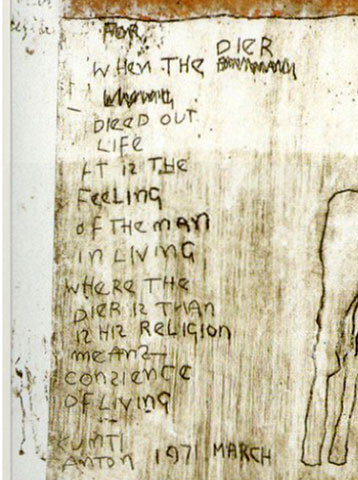 FOR
DIER
WHEN THE
DIEED OUT
LIFE
IT IS THE
FEELING
OF THE MAN
IN LIVING
WHERE THE
DIER IS THAN
IS HIS RELIGION
MEANS
CONZIENCE
OF LIVING
KUNTI
ANTON 1971 MARCH